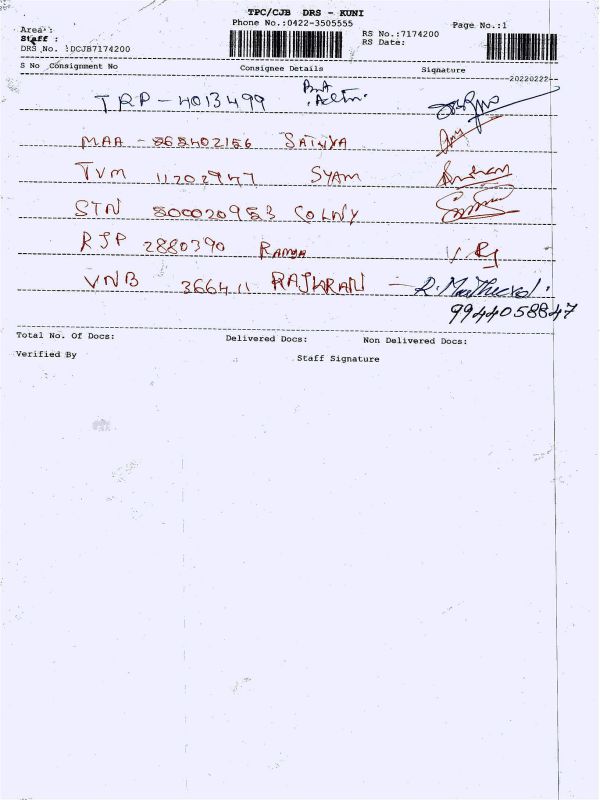 TPC/CJB DRS - KUNI
Phone No.:0422-3505555
Page No.:1
Area :
Staff :
DRS No. :DCJB7174200
RS No.:7174200
RS Date:
S No Consignment No Consignee Details Signature
20220222
TRP - 4013499
MAA - 868402156 SATHYA
TVM 11202947 SYAM
STN 500020953 COLNY
RJP 2880390 RAMYA
VNB 366411
9944058847
Total No. Of Docs: Delivered Docs: Non Delivered Docs:
Verified By Staff Signature